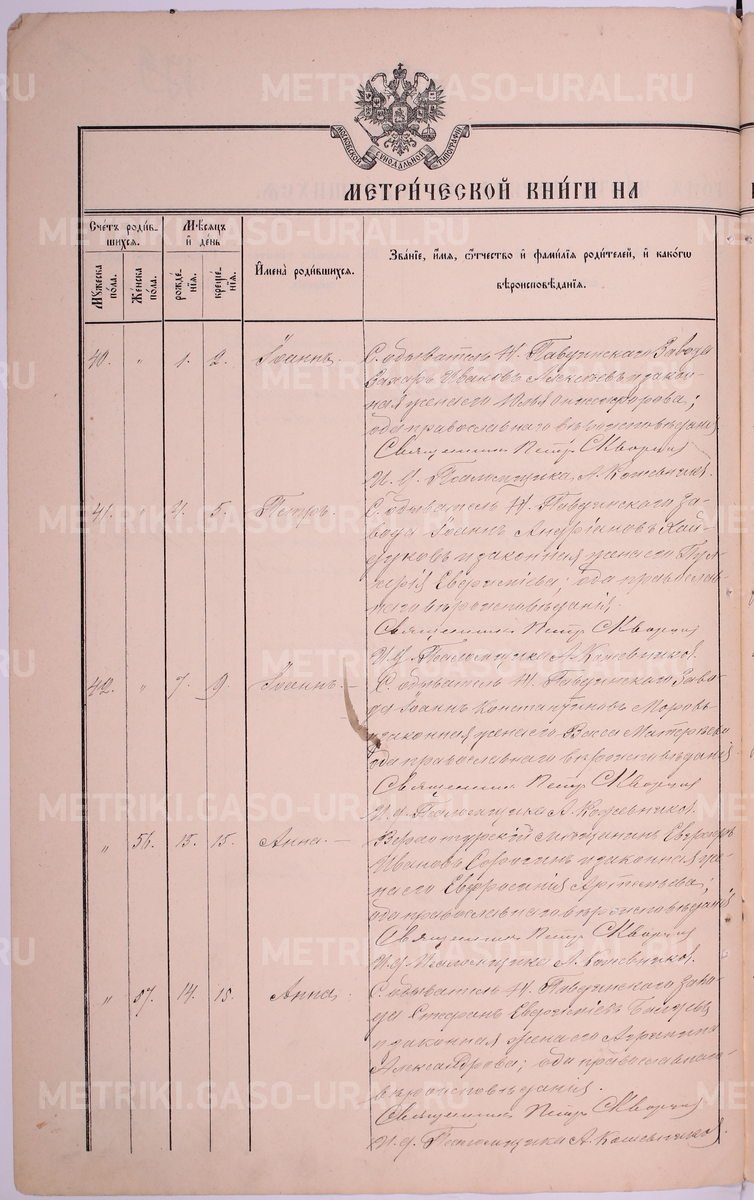 МОСКОВСКОЙ СѴНОДАЛЬНОЙ ТИПОГРАФІИ
МЕТРИ́ЧЕСКОЙ КНИ́ГИ НА
Сче́тъ роди́в-
шихся.
Мѣ́сяцъ
и҆ де́нь
И҆мена̀ роди́вшихся.
Зва́нїе, и҆́мѧ, ѻ҆́тчество и҆ фами́лїѧ роди́телей, и҆ како́гѡ
вѣроисповѣ́данїѧ.
Мꙋ́жеска
по́ла.
Же́нска
по́ла.
рожде́-
нїѧ.
креще́-
нїѧ.
40. " 1. 2. Іоаннъ.
С. обыватель Н. Павдинскаго Завода
Захаръ Ивановъ Алексѣевъ и закон-
ная жена его Юлія Онисифорова;
оба православнаго вѣроисповѣданія
Священникъ Петръ Скворцовъ
И. д. Псаломщика А. Кожевниковъ.
41. " 4. 5. Петръ.
С. обыватель Н. Павдинскаго За-
вода Іоаннъ Андріановъ Хай-
дуковъ и законная жена его Пул-
херія Евфиміева; оба православ-
наго вѣроисповѣданія.
Священникъ Петръ Скворцовъ
И. д. Псаломщика А. Кожевниковъ.
42. " 7. 9. Іоаннъ.
С. обыватель Н. Павдинскаго Заво-
да Іоаннъ Константиновъ Моровъ
и законная жена его Васса
оба православнаго вѣроисповѣданія
Священникъ Петръ Скворцовъ
И. д. Псаломщика А. Кожевниковъ.
" 56. 15. 15. Анна.
Верхотурскій мѣщанинъ
Ивановъ и законная же-
на его Евфросинія Артемьева;
оба православнаго вѣроисповѣданія
Священникъ Петръ Скворцовъ
И. д. Псаломщика А. Кожевниковъ.
" 57. 14. 15. Анна.
С. обыватель Н. Павдинскаго Заво-
да Стефанъ Евфиміевъ
и законная жена его Агрипина
Александрова; оба православнаго
вѣроисповѣданія.
Священникъ Петръ Скворцовъ
И. д. Псаломщика А. Кожевниковъ.
METRIKI.GASO-URAL.RU